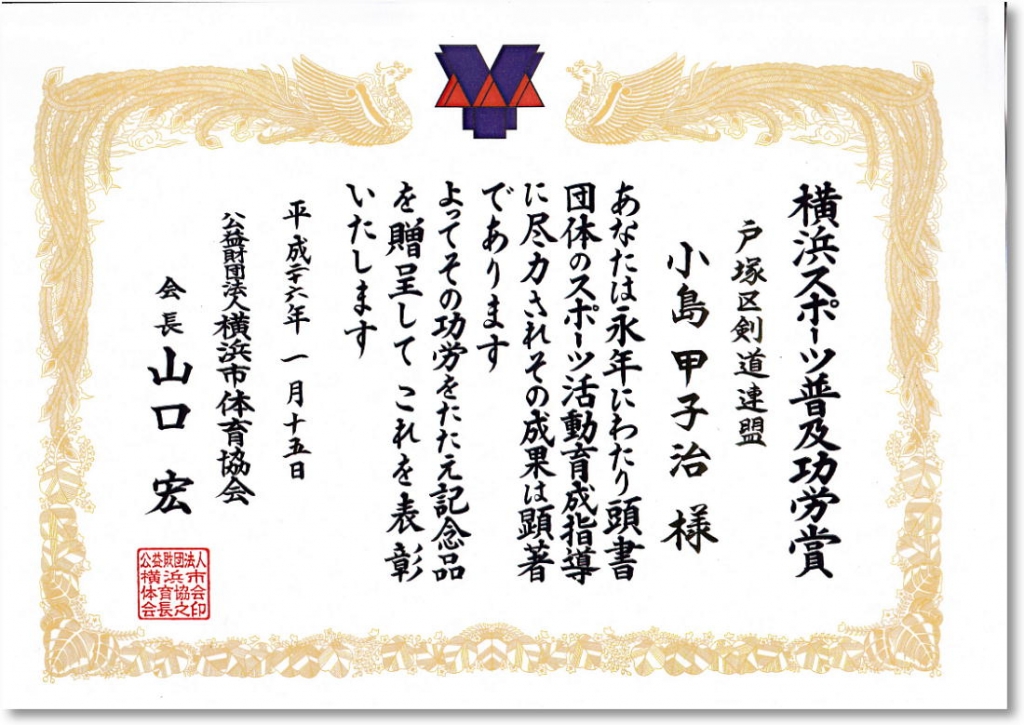 横浜スポーツ普及功労賞
戸塚区剣道連盟
小島甲子治 様
あなたは永年にわたり頭書
団体のスポーツ活動育成指導
に尽力されその成果は顕著
であります
よってその功労をたたえ記念品
を贈呈して これを表彰
いたします
平成二十六年一月十五日
公益財団法人横浜市体育協会
会長 山口 宏
公益財団法人
横浜市
体育協会
会長之印